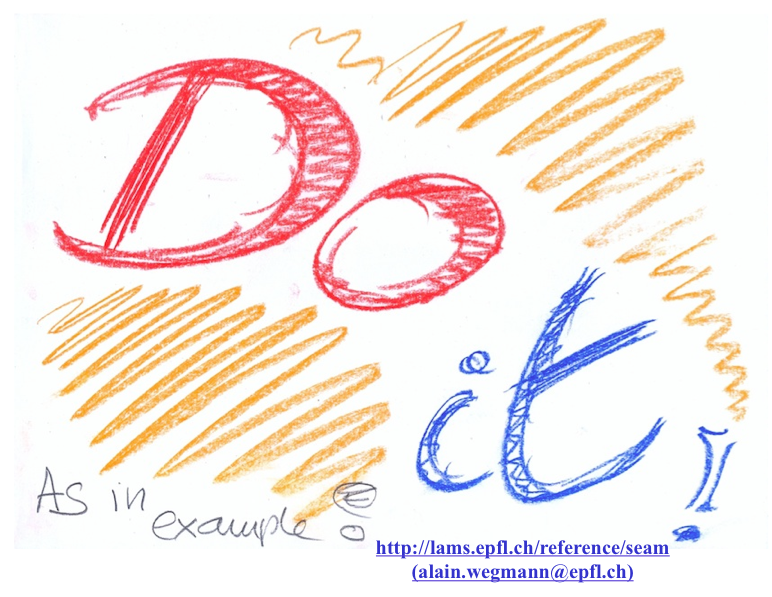 Do
it!
As in
example!
http://lams.epfl.ch/reference/seam
(alain.wegmann@epfl.ch)